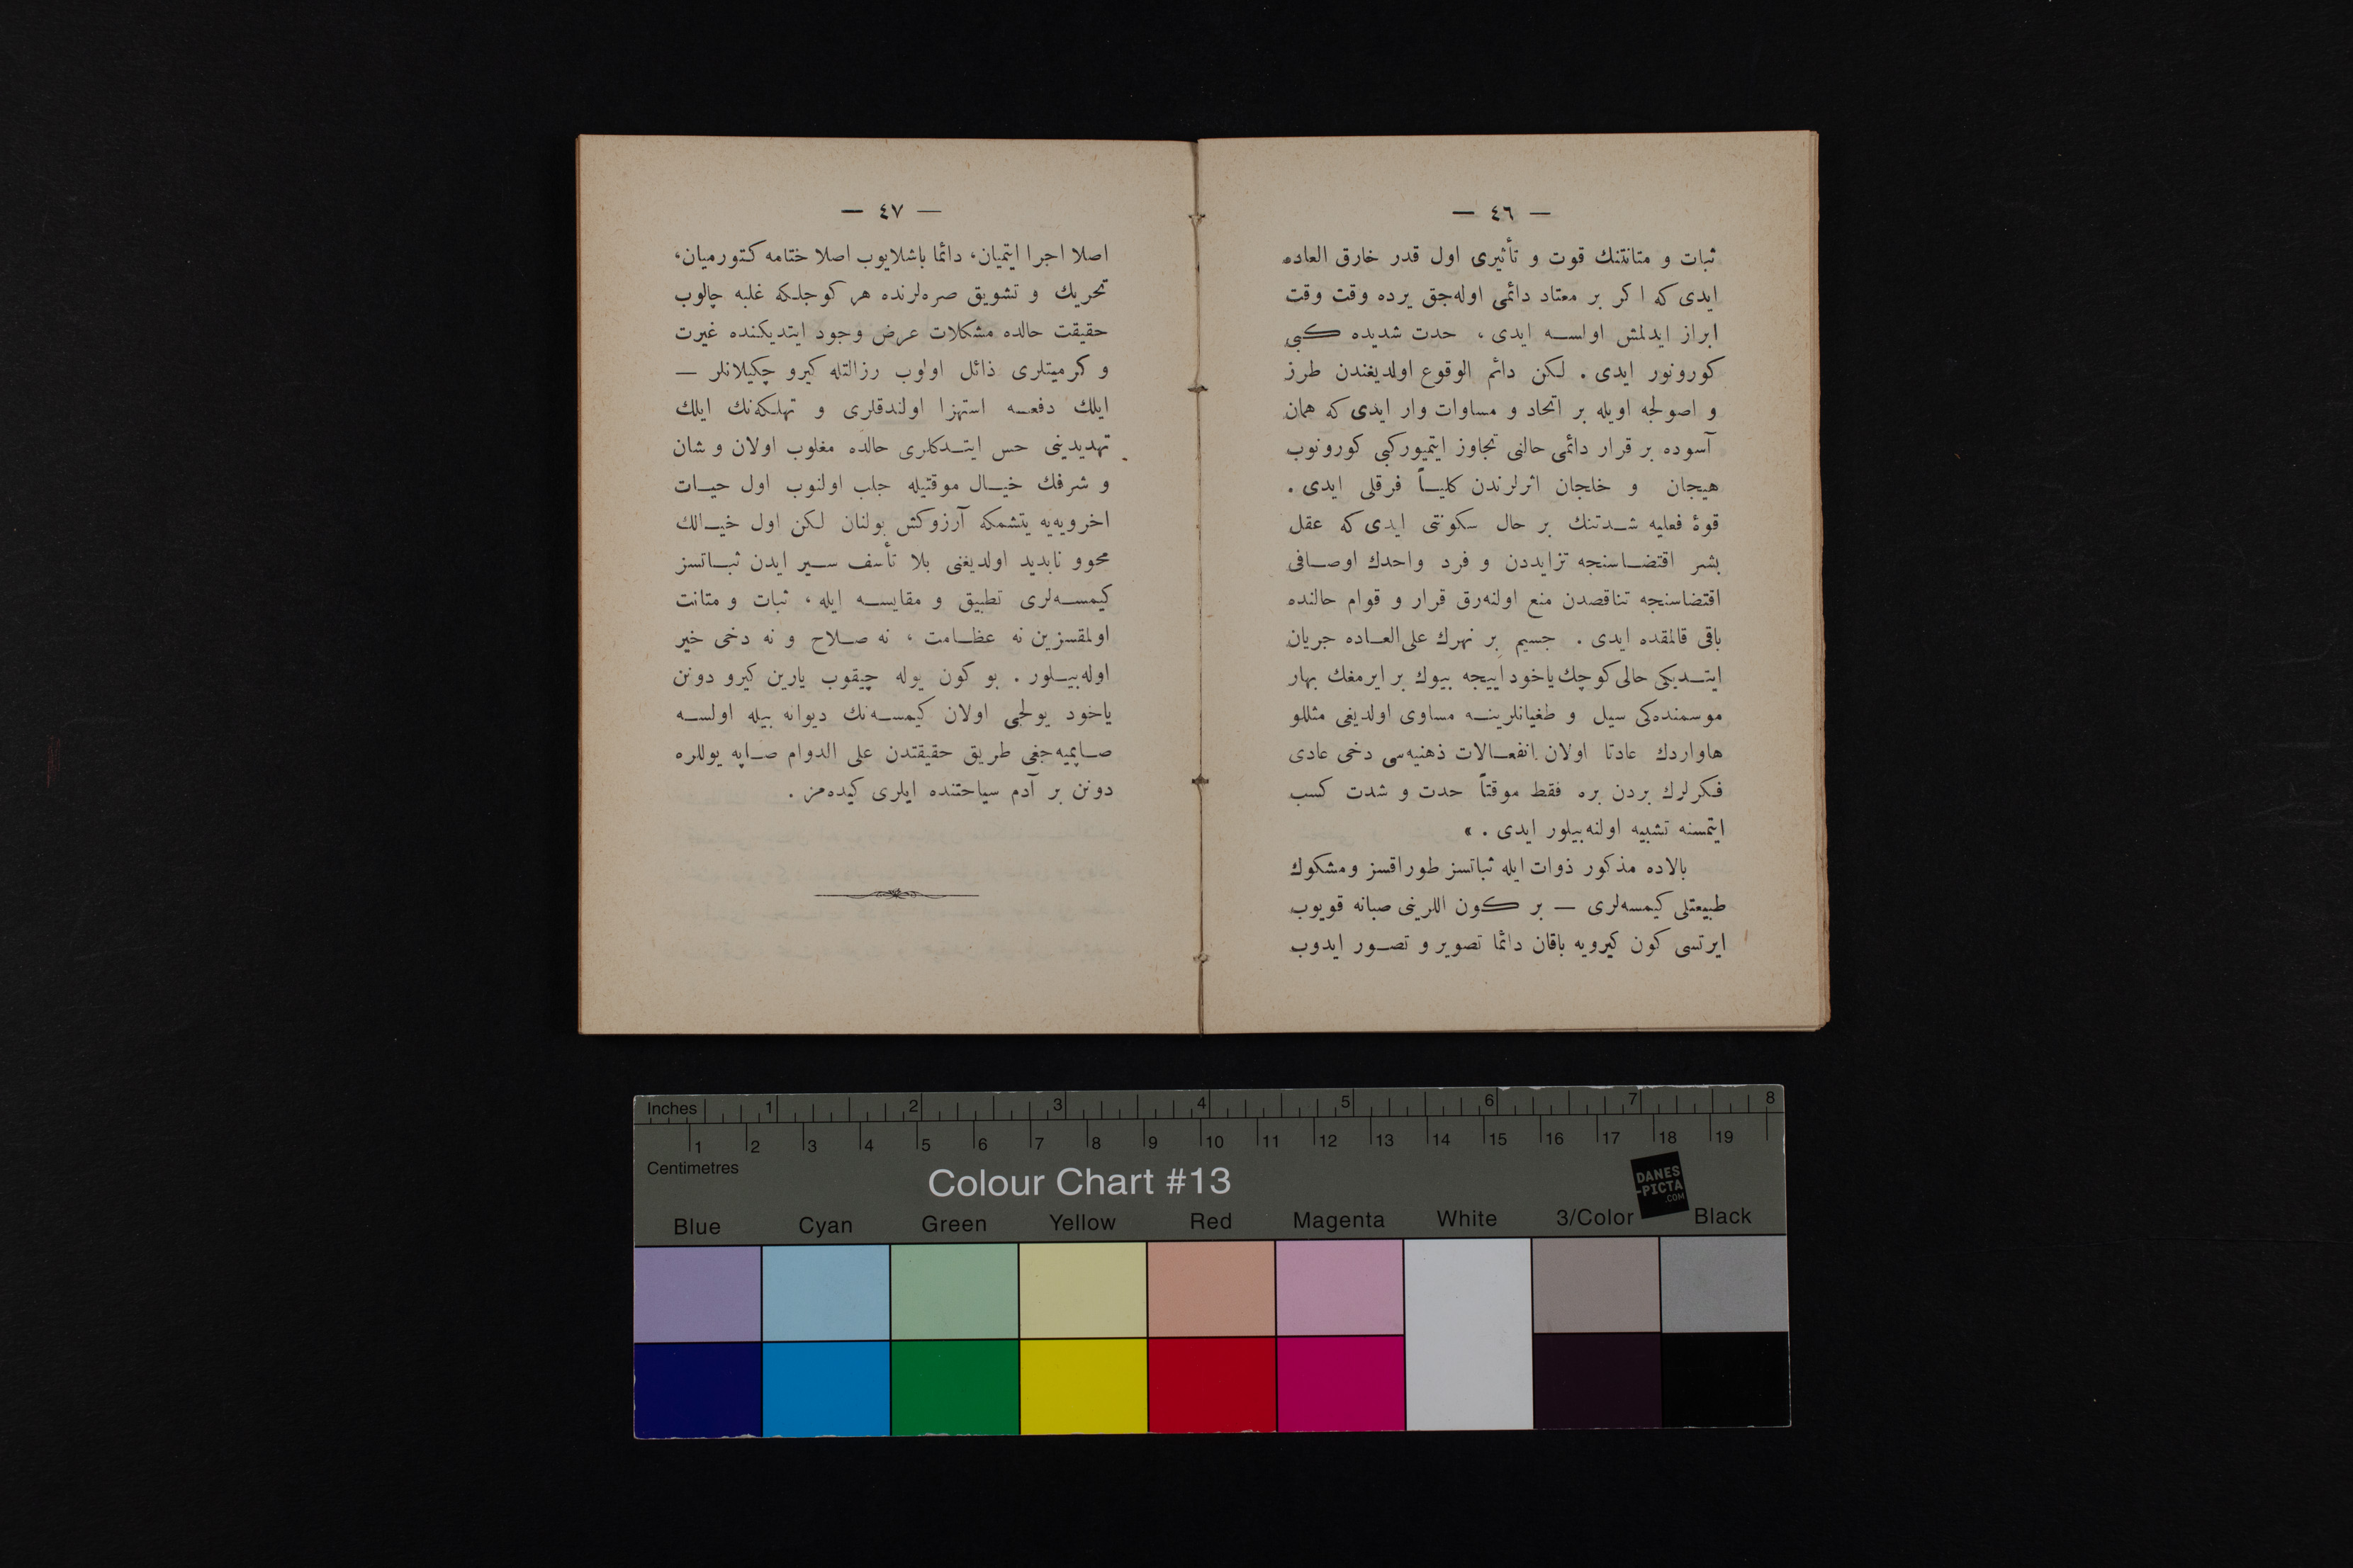 — ٤٦ —
ثبات و متانتنك قوت و تأثیری اول قدر خارق العاده
ایدی که اکر بر معتاد دائمی اوله‌جق یرده وقت وقت
ابراز ایدلمش اولسه ایدی ، حدت شدیده کبی
کورونور ایدی . لکن دائم الوقوع اولدیغندن طرز
و اصولجه اویله بر اتحاد و مساوات وار ایدی که همان
آسوده بر قرار دائمی حالنی تجاوز ایتمیورکبی کورونوب
هیجان و خلجان اثرلرندن کلیاً فرقلی ایدی .
قوۀ فعلیه شدتنك بر حال سکونتی ایدی که عقل
بشر اقتضاسنجه تزایددن و فرد واحدك اوصافی
اقتضاسنجه تناقصدن منع اولنه‌رق قرار و قوام حالنده
باقی قالمقده ایدی . جسیم بر نهرك علی‌العاده جریان
ایتدیکی حالی کوچك یاخود اییجه بیوك بر ایرمغك بهار
موسمنده‌کی سیل و طغیانلرینه مساوی اولدیغی مثللو
هاواردك عادتا اولان انفعالات ذهنیه‌سی دخی عادی
فکرلرك بردن بره فقط موقتاً حدت و شدت کسب
ایتمسنه تشبیه اولنه‌بیلور ایدی . »
بالاده مذکور ذوات ایله ثباتسز طوراقسز ومشکوك
طبیعتلی کیمسه‌لری — بر کون اللرینی صبانه قویوب
ایرتسی کون کیرویه باقان دائما تصویر و تصور ایدوب
— ٤٧ —
اصلا اجرا ایتمیان، دائما باشلایوب اصلا ختامه کتورمیان،
تحریك و تشویق صره‌لرنده هر کوجلکه غلبه چالوب
حقیقت حالده مشکلات عرض وجود ایتدیکنده غیرت
و کرمیتلری ذائل اولوب رزالتله کیرو چکیلانلر —
ایلك دفعه استهزا اولندقلری و تهلکه‌نك ایلك
تهدیدینی حس ایتدکلری حالده مغلوب اولان و شان
و شرفك خیال موقتیله جلب اولنوب اول حیات
اخرویه‌یه یتشمکه آرزوکش بولنان لکن اول خیالك
محوو نابدید اولدیغنی بلا تأسف سیر ایدن ثباتسز
کیمسه‌لری تطبیق و مقایسه ایله ، ثبات و متانت
اولمقسزین نه عظامت ، نه صلاح و نه دخی خیر
اوله‌بیلور . بو کون یوله چیقوب یارین کیرو دونن
یاخود یولجی اولان کیمسه‌نك دیوانه بیله اولسه
صاپمیه‌جغی طریق حقیقتدن علی الدوام صاپه یوللره
دونن بر آدم سیاحتنده ایلری کیده‌مز .
Inches 1 2 3 4 5 6 7 8
1 2 3 4 5 6 7 8 9 10 11 12 13 14 15 16 17 18 19
Centimetres
Colour Chart #13
DANES
-PICTA
.COM
Blue Cyan Green Yellow Red Magenta White 3/Color Black